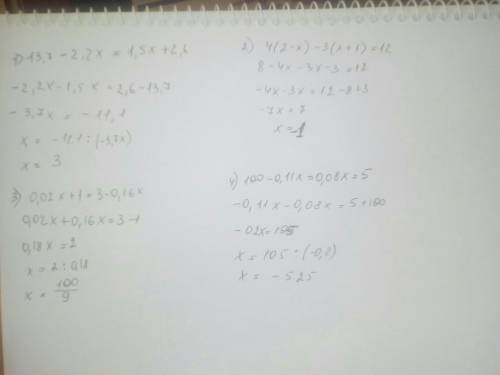 1) 13,7 - 2,2x = 1,5x + 2,6
-2,2x - 1,5x = 2,6 - 13,7
-3,7x = -11,1
x = -11.1 : (-3,7x)
x = 3
2) 4(2-x) - 3(x+1) = 12
8 - 4x - 3x - 3 = 12
-4x - 3x = 12 - 8 + 3
-7x = 7
x = 1
3) 0,02x + 1 = 3 - 0,16x
0,02x + 0,16x = 3 - 1
0,18x = 2
x = 2 : 0,18
x = 100/9
4) 100 - 0,11x = 0,08x = 5
-0,11x - 0,08x = 5 + 100
-02x = 105
x = 105 : (-0,2)
x = -525